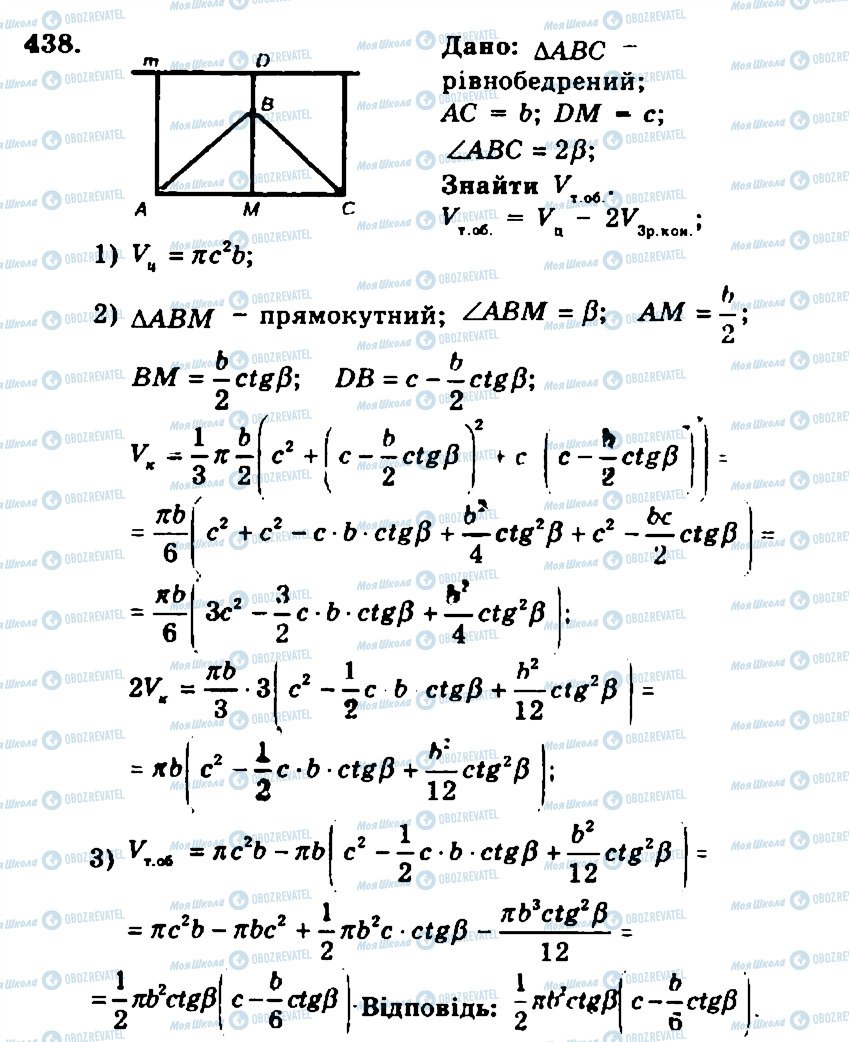 438.
m D
B
A M C
Дано: △ABC –
рівнобедрений;
AC = b; DM = c;
∠ABC = 2β;
Знайти V т.об.
V т.об. = V ц – 2V Зр.кон.;
1) V ц = πc²b;
2) △ABM – прямокутний; ∠ABM = β; AM = b/2;
BM = b/2 ctgβ; DB = c – b/2 ctgβ;
V к = 1/3 π b/2 ( c² + ( c – b/2 ctgβ )² + c ( c – b/2 ctgβ ) ) =
= πb/6 ( c² + c² – c · b · ctgβ + b²/4 ctg²β + c² – bc/2 ctgβ ) =
= πb/6 ( 3c² – 3/2 c · b · ctgβ + b²/4 ctg²β );
2V к = πb/3 · 3 ( c² – 1/2 c b ctgβ + b²/12 ctg²β ) =
= πb ( c² – 1/2 c · b · ctgβ + b²/12 ctg²β );
3) V т.об = πc²b – πb ( c² – 1/2 c · b · ctgβ + b²/12 ctg²β ) =
= πc²b – πbc² + 1/2 πb²c · ctgβ – πb³ctg²β/12 =
= 1/2 πb²ctgβ ( c – b/6 ctgβ ). Відповідь: 1/2 πb²ctgβ ( c – b/6 ctgβ ).
Моя Школа OBOZREVATEL